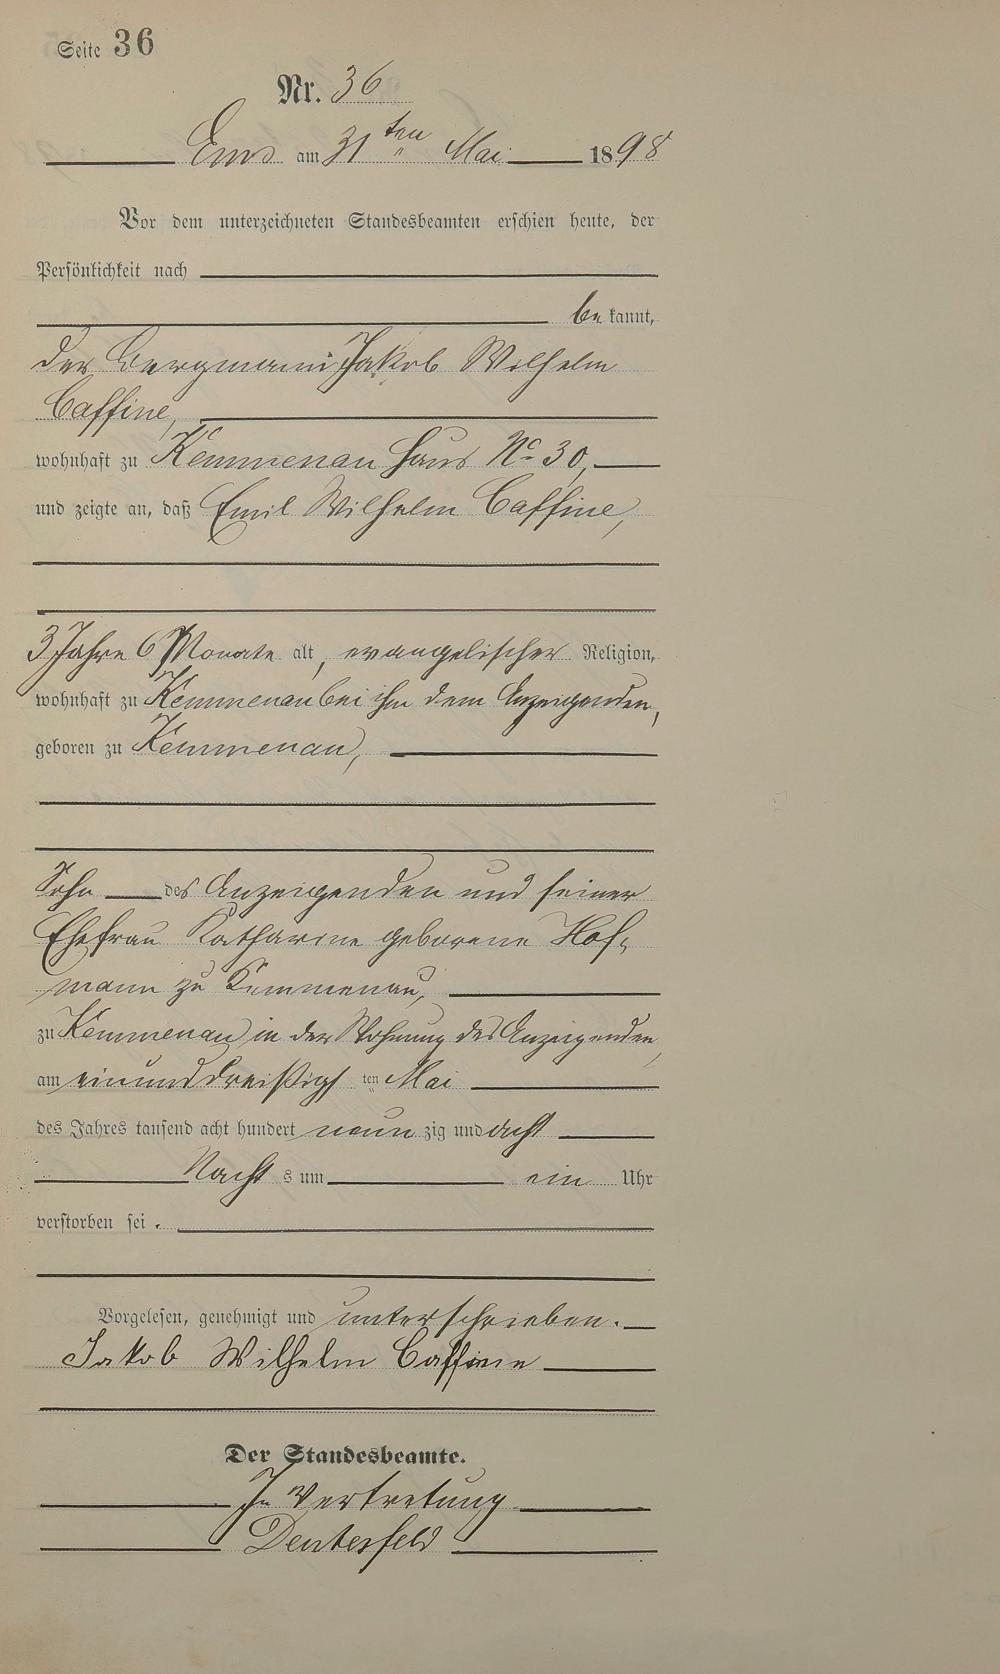 Seite 36
Nr. 36
Ems am 31ten Mai 1898
Vor dem unterzeichneten Standesbeamten erschien heute, der
Persönlichkeit nach
bekannt,
der Bergmann Jakob Wilhelm
Caffine,
wohnhaft zu Kemmenau Haus No 30,
und zeigte an, daß Emil Wilhelm Caffine,
3 Jahre 6 Monate alt, evangelischer Religion,
wohnhaft zu Kemmenau bei ihm dem Anzeigenden,
geboren zu Kemmenau,
Sohn des Anzeigenden und seiner
Ehefrau Katharine geborene Hof-
mann zu Kemmenau,
zu Kemmenau in der Wohnung des Anzeigenden,
am einunddreißigsten Mai
des Jahres tausend acht hundert neunzig und acht
Nachts um ein Uhr
verstorben sei.
Vorgelesen, genehmigt und unterschrieben.
Jakob Wilhelm Caffine
Der Standesbeamte.
In Vertretung